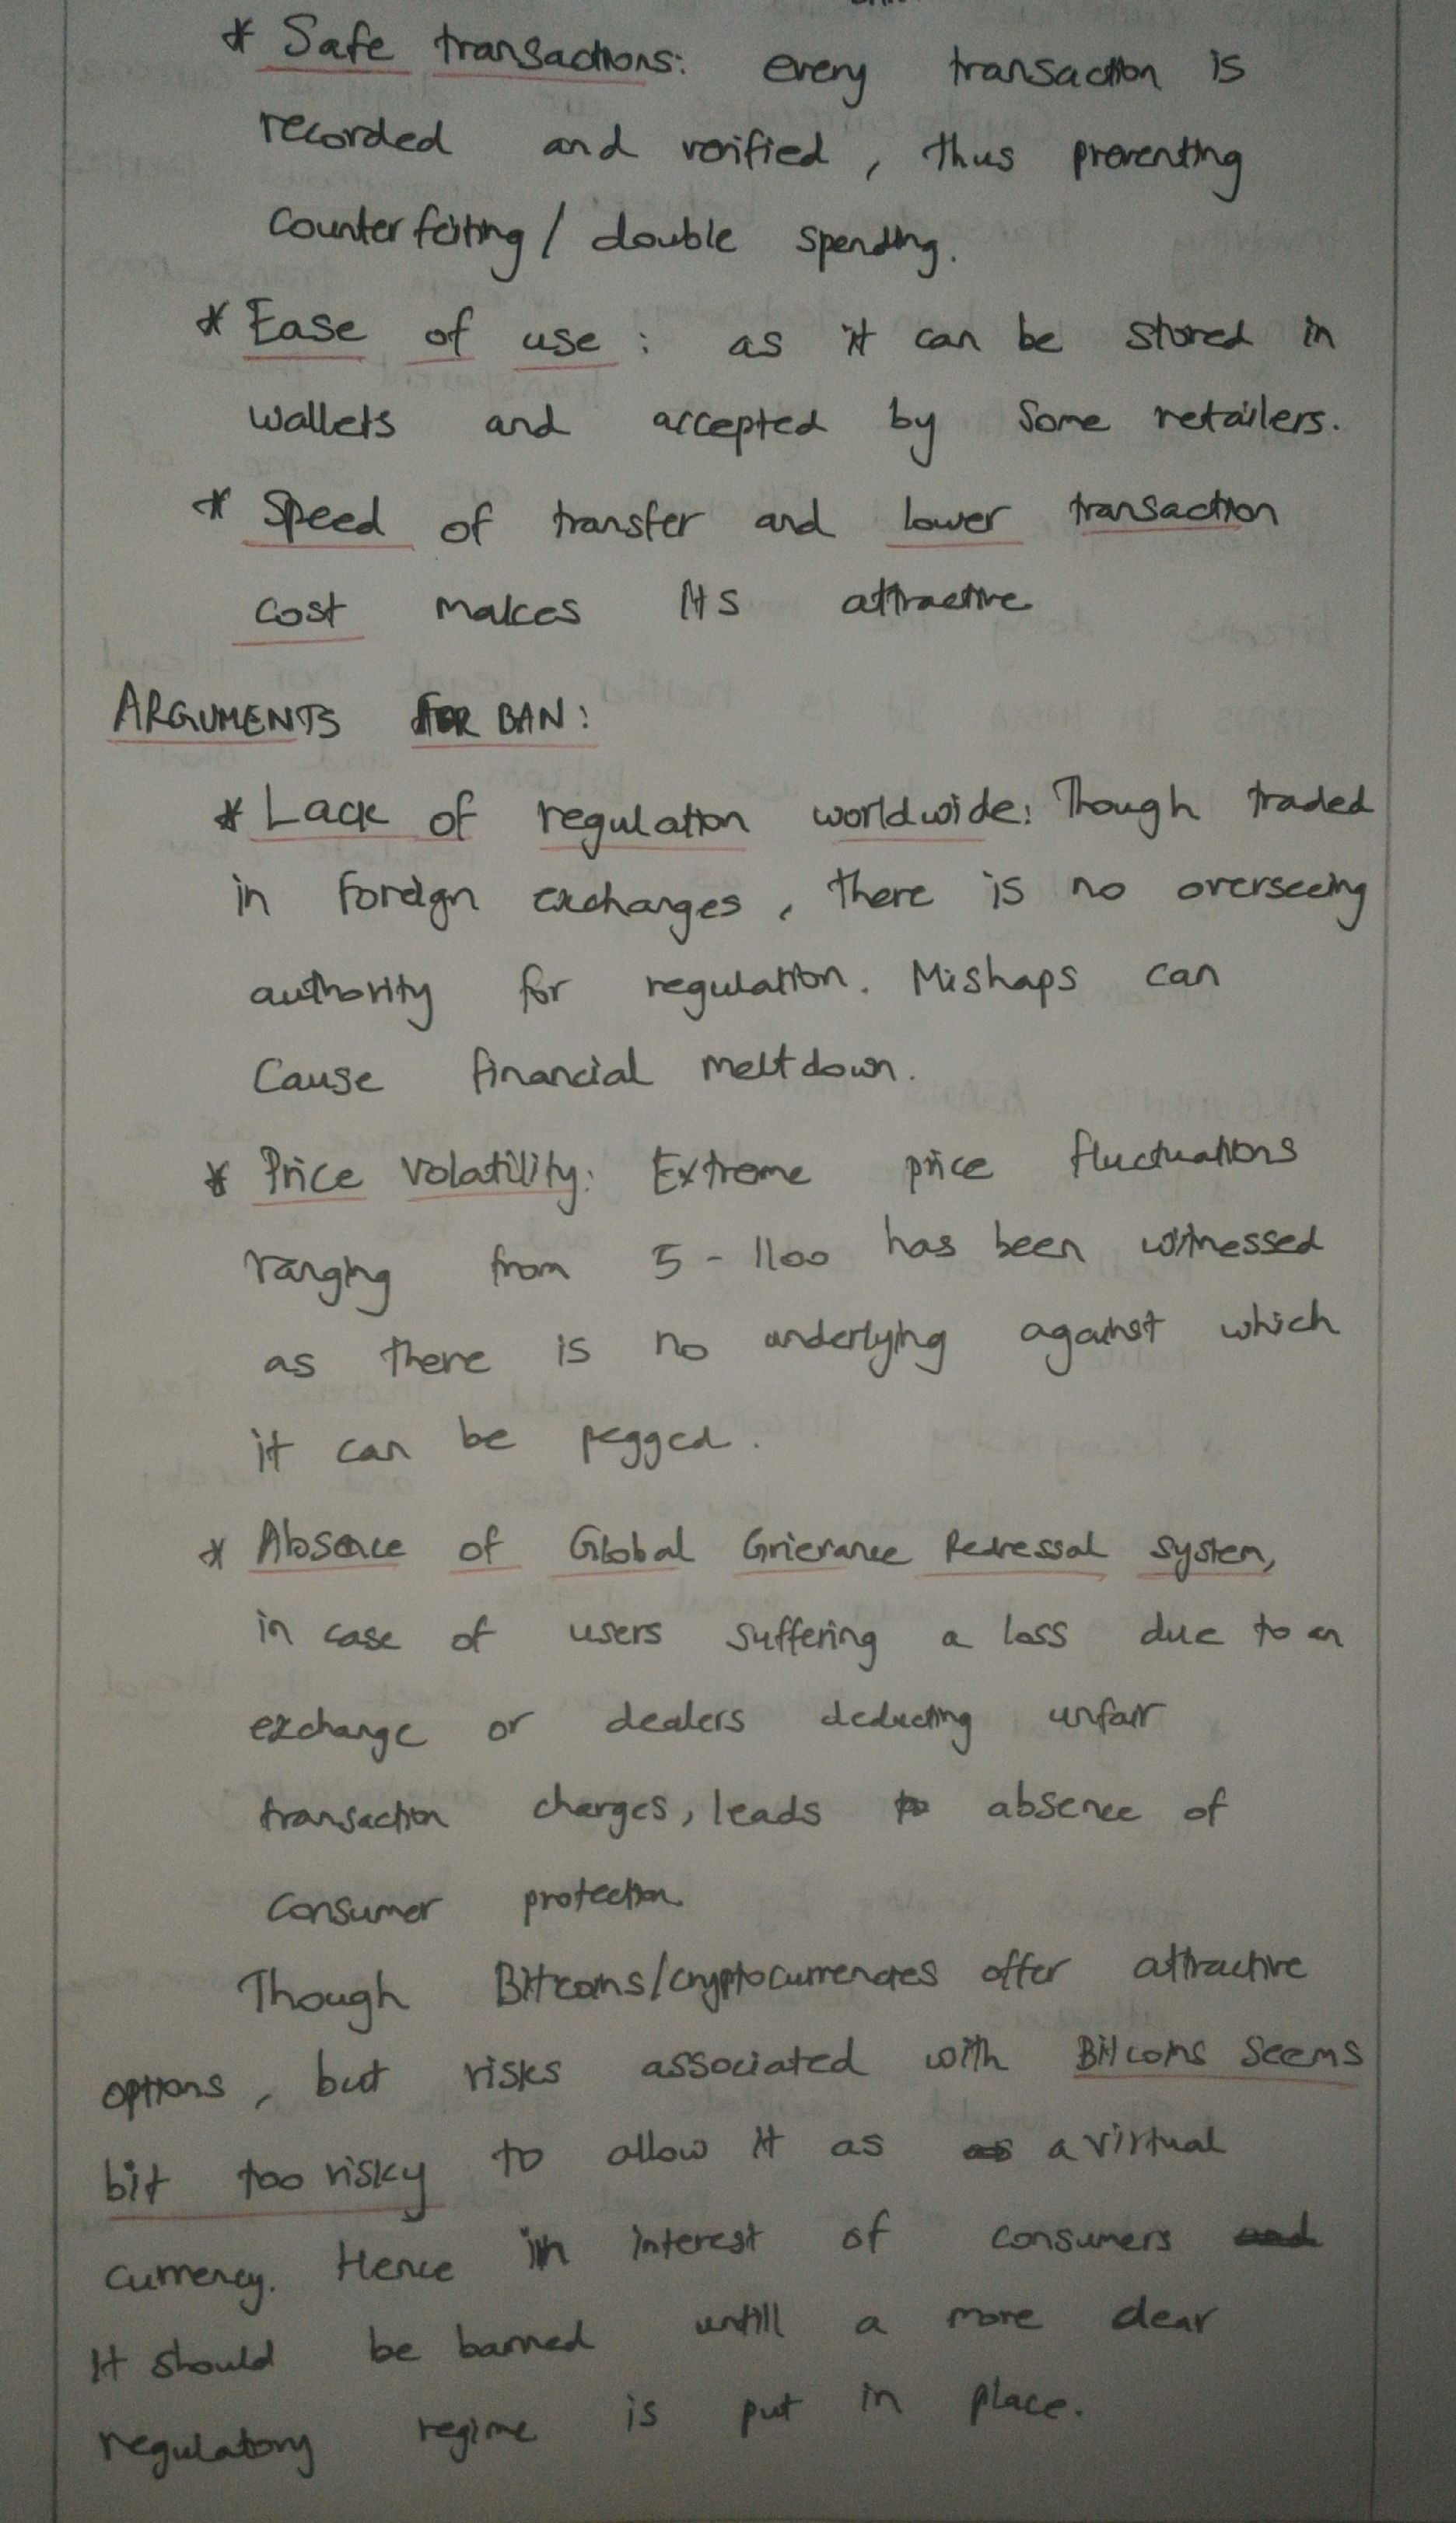 * Safe transactions: every transaction is
recorded and verified, thus preventing
Counterfeiting/ double spending.
* Ease of use: as it can be stored in
wallets and accepted by some retailers.
* Speed of transfer and lower transaction
cost makes its attractive
ARGUMENTS FOR BAN:
* Lack of regulation worldwide: Though traded
in foreign exchanges, there is no overseeing
authority for regulation. Mishaps can
Cause financial meltdown.
* Price Volatility: Extreme price fluctuations
ranging from 5 - 1100 has been witnessed
as there is no underlying against which
it can be pegged.
* Absence of Global Grievance Redressal system,
in case of users suffering a loss due to an
exchange or dealers deducting unfair
transaction charges, leads to absence of
Consumer protection.
Though Bitcoins/cryptocurrencies offer attractive
options, but risks associated with Bitcoins seems
bit too risky to allow it as as a virtual
currency. Hence in interest of consumers and
It should be banned untill a more clear
regulatory regime is put in place.